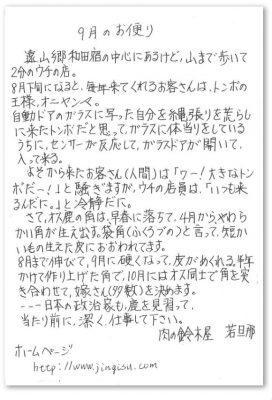 9月のお便り
遠山郷和田宿の中心にあるけど、山まで歩いて
2分のウチの店。
8月下旬になると、毎年来てくれるお客さんは、トンボの
王様、オニヤンマ。
自動ドアのガラスに写った自分を縄張りを荒らし
に来たトンボだと思って、ガラスに体当りをしている
うちに、センサーが反応して、ガラスドアが開いて、
入って来る。
よそから来たお客さん(人間)は「ワー!大きなトン
ボだー!」と騒ぎますが、ウチの店員は、「いつも来
るんだに。」と冷静だに。
さて、オス鹿の角は、早春に落ちて、4月からやわら
かい角が生え出す。袋角(ふくろづの)と言って、短か
い毛の生えた皮におおわれてます。
8月まで伸びて、9月に硬くなって、皮がめくれる。半年
かけて作り上げた角で、10月にはオス同士で角を突
き合わせて、嫁さん(多数)を決めます。
---日本の政治家も、鹿を見習って、
当たり前に、潔く、仕事して下さい。
肉の鈴木屋 若旦那
ホームページ
http://www.jingisu.com/